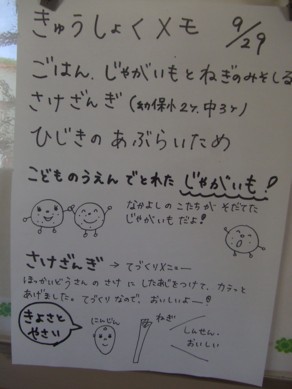 きゅうしょくメモ 9/29
ごはん、じゃがいもとねぎのみそしる
さけざんぎ(幼保小2ケ.中3ケ)
ひじきのあぶらいため
こどものうえんでとれたじゃがいも!
なかよしのこたちが そだてた
じゃがいもだよ!
さけざんぎ → てづくりメニュー
ほっかいどうさんの さけ に したあじをつけて、カラッと
あげました。てづくり なので、おいしいよ〜!!
きよさと
やさい
にんじん
ねぎ
しんせん、
おいしい